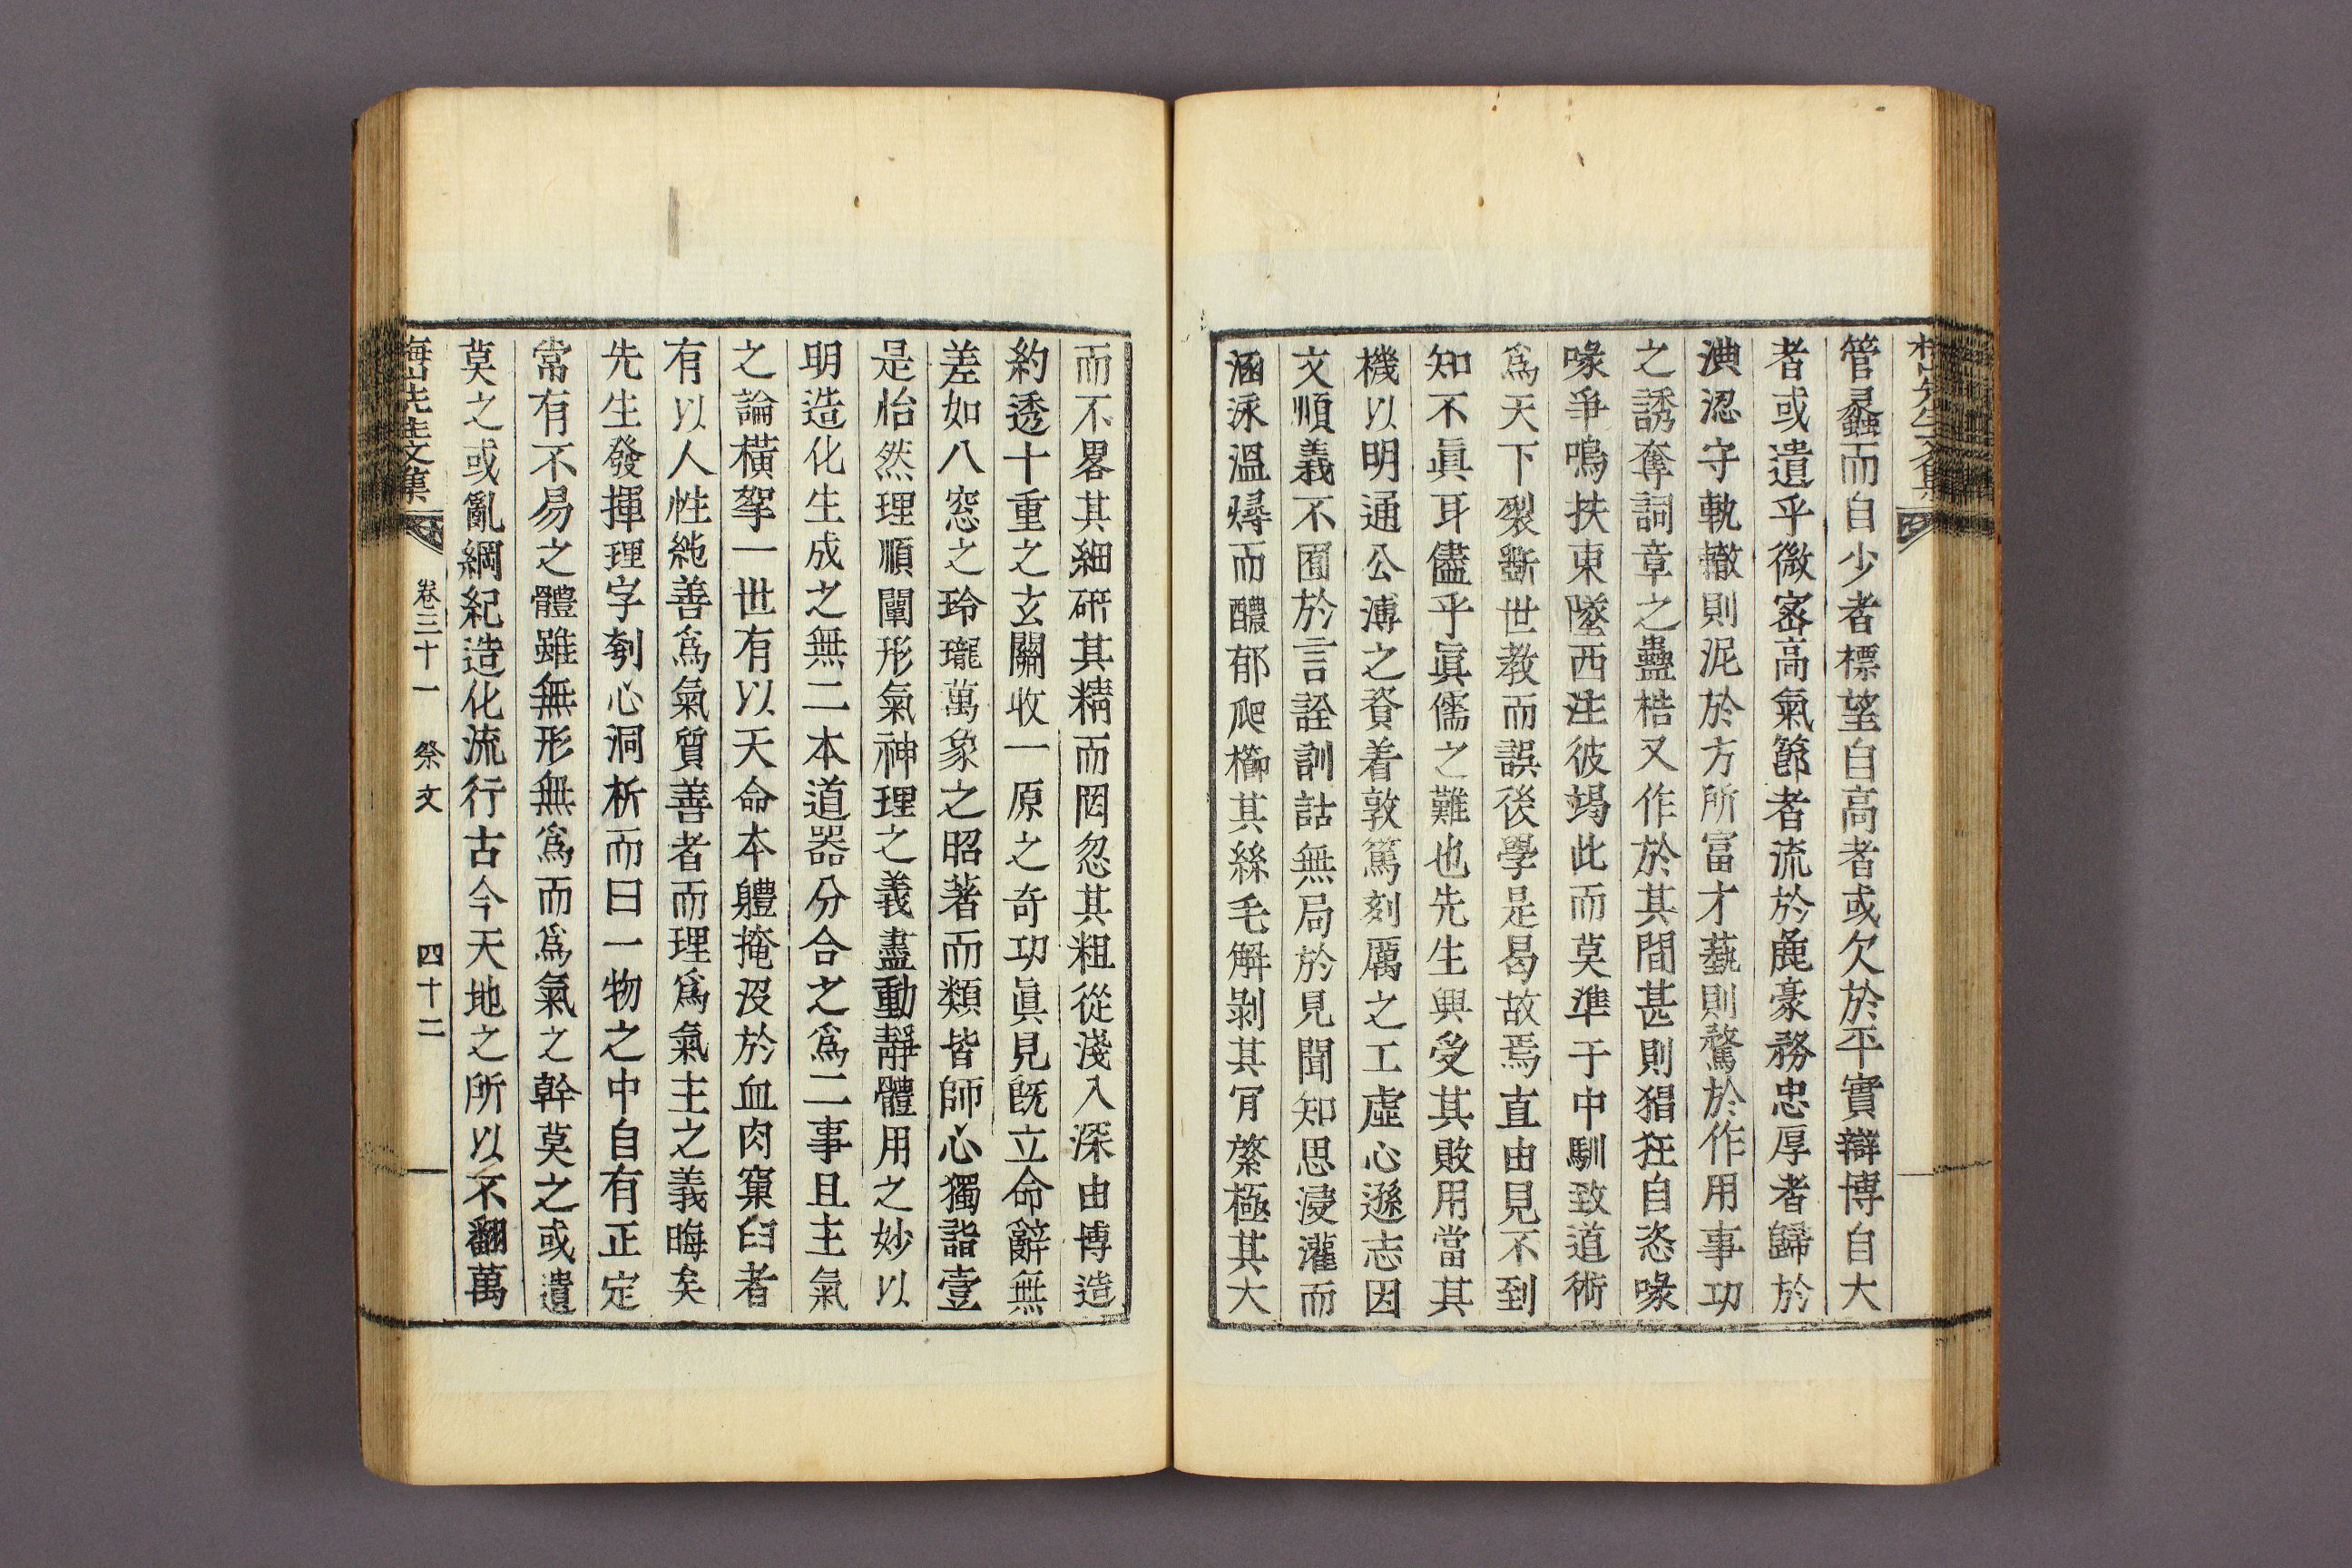 管蠡而自少者標望自高者或欠於平實辯博自大
者或遺乎微密高氣節者流於麁豪務忠厚者歸於
淟涊守軌轍則泥於方所富才藝則騖於作用事功
之誘奪詞章之蠱梏又作於其間甚則猖狂自恣喙
喙爭鳴扶東墜西注彼竭此而莫準于中馴致道術
爲天下裂斷世敎而誤後學是曷故焉直由見不到
知不眞耳儘乎眞儒之難也先生興受其敗用當其
機以明通公溥之資着敦篤刻厲之工虛心遜志因
文順義不囿於言詮訓詁無局於見聞知思浸灌而
涵泳溫燖而醲郁爬櫛其絲毛解剝其肎綮極其大
而不畧其細硏其精而罔忽其粗從淺入深由博造
約透十重之玄關收一原之奇功眞見旣立命辭無
差如八窓之玲瓏萬象之昭著而類皆師心獨詣壹
是怡然理順闡形氣神理之義盡動靜體用之妙以
明造化生成之無二本道器分合之爲二事且主氣
之論橫拏一世有以天命本軆掩沒於血肉窠臼者
有以人性純善爲氣質善者而理爲氣主之義晦矣
先生發揮理字刳心洞析而曰一物之中自有正定
常有不易之體雖無形無爲而爲氣之幹莫之或遺
莫之或亂綱紀造化流行古今天地之所以不翻萬
卷三十一 祭文 四十二